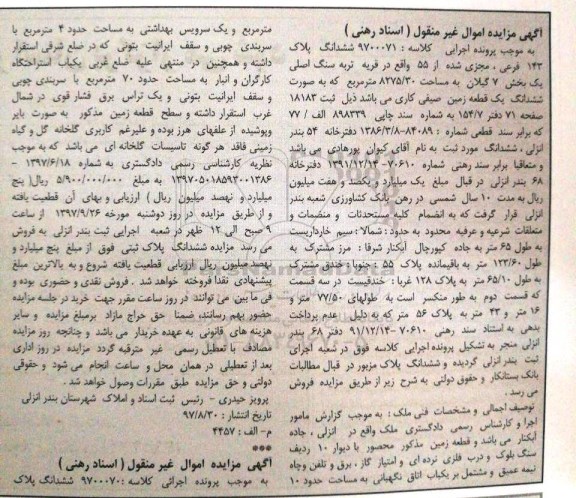 آگهی مزایده اموال غیر منقول ( اسناد رهنی )
به موجب پرونده اجرایی کلاسه : ۹۷۰۰۰۷۱ ششدانگ پلاک
۱۴۳ فرعی ، مجزی شده از ۵۵ واقع در قریه تربه سنگ اصلی
یک بخش ۷ گیلان به مساحت ۸۲۷۵/۳۰ مترمربع که به صورت
ششدانگ یک قطعه زمین صیفی کاری می باشد ذیل ثبت ۱۸۱۸۳
صفحه ۷۱ دفتر ۱۵۴/۷ به شماره سند چاپی ۸۹۸۳۳۹ الف / ۷۷
که برابر سند قطعی شماره : ۸۴۰۸۹-۱۳۸۶/۳/۸ دفترخانه ۵۴ بندر
انزلی ، ششدانگ مورد ثبت به نام آقای کیوان پورهادی می باشد
و متعاقبا برابر سند رهنی شماره ۷۰۶۱۰-۱۳۹۱/۱۲/۱۴ دفترخانه
۶۸ بندر انزلی در قبال مبلغ یک میلیارد و یکصد و هفت میلیون
ریال به مدت ۱۰ سال شمسی در رهن بانک کشاورزی شعبه بندر
انزلی قرار گرفت که به انضمام کلیه مستحدثات و منضمات و
متعلقات شرعیه و عرفیه محدود به حدود : شمالا : سیم خارداریست
به طول ۶۵ متر به جاده کپورچال آبکنار شرقا : مرز مشترک به
طول ۱۲۳/۶۰ متر به باقیمانده پلاک ۵۵ : جنوبا : خندق مشترک
به طول ۶۵/۱۰ متر به پلاک ۱۲۸ غربا : خندقیست در سه قسمت
که قسمت دوم به طور منکسر است به طولهای ۷۷/۵۰ متر و
۱۶ متر و ۴۳ متر به پلاک ۵۶ متر که به دلیل عدم پرداخت
بدهی به استناد سند رهنی ۷۰۶۱۰-۹۱/۱۲/۱۴ دفتر ۶۸ بندر
انزلی منجر به تشکیل پرونده اجرایی کلاسه فوق در شعبه اجرای
ثبت بندر انزلی گردیده و ششدانگ پلاک مزبور در قبال مطالبات
بانک بستانکار و حقوق دولتی به شرح زیر از طریق مزایده فروش
می رسد .
توصیف اجمالی و مشخصات فنی ملک : به موجب گزارش مامور
اجرا و کارشناس رسمی دادگستری ملک واقع در انزلی ، جاده
آبکنار می باشد و قطعه زمین مذکور محصور با دیوار ۱۰ ردیف
سنگ بلوک و درب فلزی نرده ای و امتیاز گاز ، برق و تلفن وچاه
نیمه عمیق و مشتمل بر یکباب اتاق نگهبانی به مساحت حدود ۱۰
مترمربع و یک سرویس بهداشتی به مساحت حدود ۴ مترمربع با
سربندی چوبی و سقف ایرانیت بتونی که در ضلع شرقی استقرار
داشته و همچنین در منتهی علیه ضلع غربی یکباب استراحتگاه
کارگران و انبار به مساحت حدود ۷۰ مترمربع با سربندی چوبی
و سقف ایرانیت بتونی و یک تراس برق فشار قوی در شمال
غرب استقرار داشته و سطح قطعه زمین مذکور به صورت بایر
وپوشیده از علفهای هرز بوده و علیرغم کاربری گلخانه گل و گیاه
زمینی فاقد هر گونه تاسیسات گلخانه ای می باشد که به موجب
نظریه کارشناسی رسمی دادگستری به شماره ۱۳۹۷/۶/۱۸ –
۱۳۹۷۰۵۰۱۸۵۹۳۰۰۱۳۸۶ به مبلغ ۵/۹۰۰/۰۰۰/۰۰۰ ریال( پنج
میلیارد و نهصد میلیون ریال ) ارزیابی و بهای آن قطعیت یافته
و از طریق مزایده در روز دوشنبه مورخه ۱۳۹۷/۹/۲۶ از ساعت
۹ صبح الی ۱۲ ظهر در شعبه اجرایی ثبت بندر انزلی به فروش
می رسد مزایده ششدانگ پلاک ثبتی فوق از مبلغ پنج میلیارد و
نهصد میلیون ریال ارزیابی قطعیت یافته شروع و به بالاترین مبلغ
پیشنهادی نقدا فروخته خواهد شد . فروش نقدی و حضوری بوده و
فی ما بین می توانند در روز ساعت مقرر جهت خرید در جلسه مزایده
حضور بهم رسانند، ضمنا حق حراج مازاد برمبلغ مزایده و سایر
هزینه های قانونی به عهده خریدار می باشد و چنانچه روز مزایده
مصادف با تعطیل رسمی غیر مترقبه گردد مزایده در روز اداری
بعد از تعطیلی در همان محل و ساعت انجام می شود و حقوقی
دولتی و حق مزایده طبق مقررات وصول خواهد شد .
پرویز حیدری – رئیس ثبت اسناد و املاک شهرستان بندر انزلی
تاریخ انتشار : ۹۷/۸/۳۰
م- الف : ۴۴۵۷
***
آگهی مزایده اموال غیر منقول ( اسناد رهنی )
به موجب پرونده اجرائی کلاسه : ۹۷۰۰۰۷۰ ششدانگ پلاک